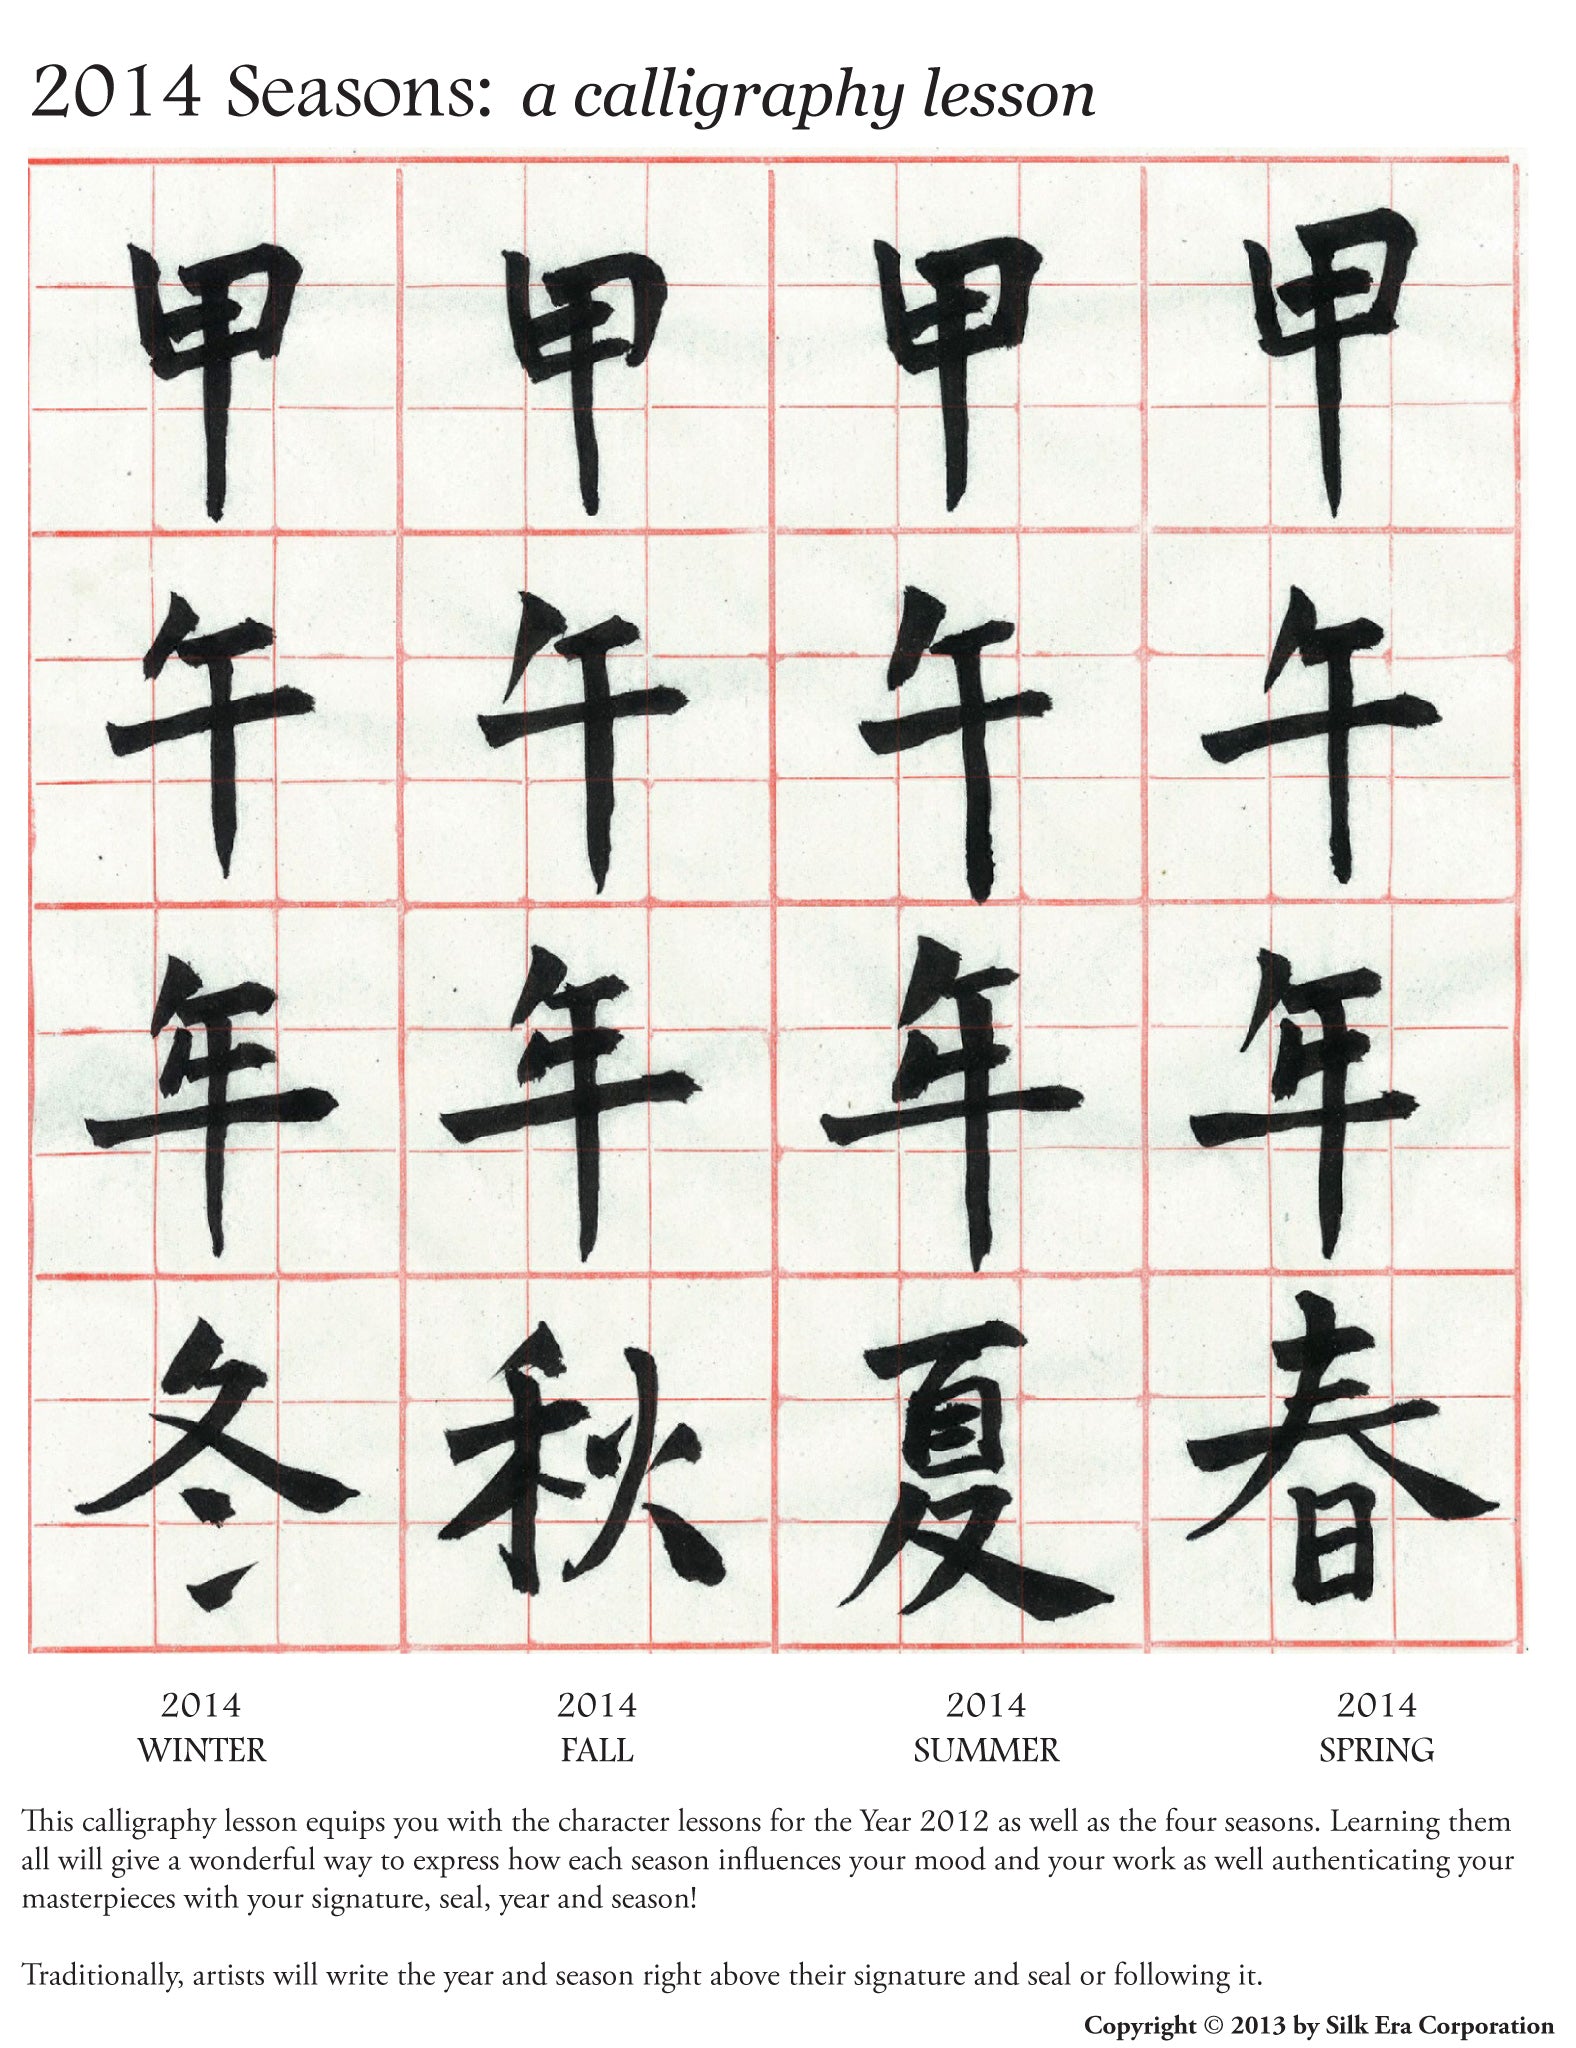 2014 Seasons: a calligraphy lesson
甲 甲 甲 甲
午 午 午 午
年 年 年 年
冬 秋 夏 春
2014 2014 2014 2014
WINTER FALL SUMMER SPRING
This calligraphy lesson equips you with the character lessons for the Year 2012 as well as the four seasons. Learning them
all will give a wonderful way to express how each season influences your mood and your work as well authenticating your
masterpieces with your signature, seal, year and season!
Traditionally, artists will write the year and season right above their signature and seal or following it.
Copyright © 2013 by Silk Era Corporation